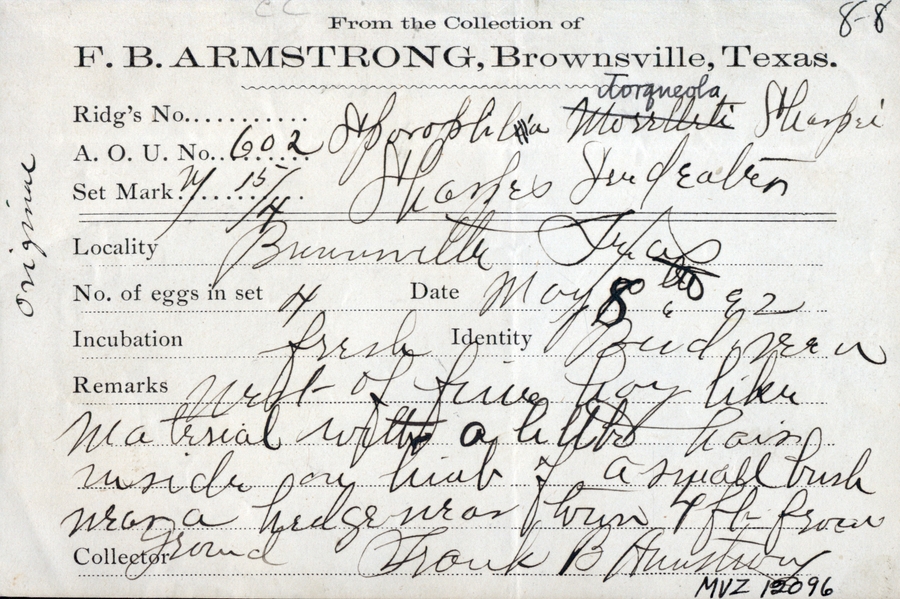 8-8
From the Collection of
F. B. ARMSTRONG, Brownsville, Texas.
torqueola
Ridg's No.
Sporophila Morelleti Sharpei
A. O. U. No. 602
Sharpes Seedeater
Set Mark 15/4
Original
Locality Brownsville Texas
No. of eggs in set 4 Date May 8th 92
Incubation fresh Identity Bird seen
Remarks Nest of fine hay like
material with a little hair
inside on limb of a small bush
near a hedge near town 4 ft from
ground
Collector Frank B Armstrong
MVZ 12096